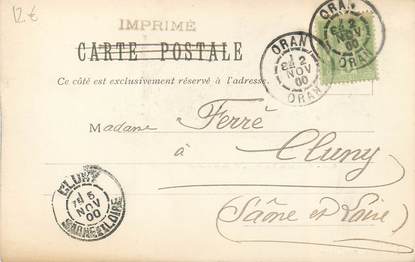 12.€
IMPRIMÉ
CARTE POSTALE
Ce côté est exclusivement réservé à l'adresse.
ORAN
2
NOV
00
ORAN
ORAN
2
NOV
00
ORAN
Madame Ferré
à Cluny
(Saône et Loire)
CLUNY
5
NOV
00
SAONE ET LOIRE